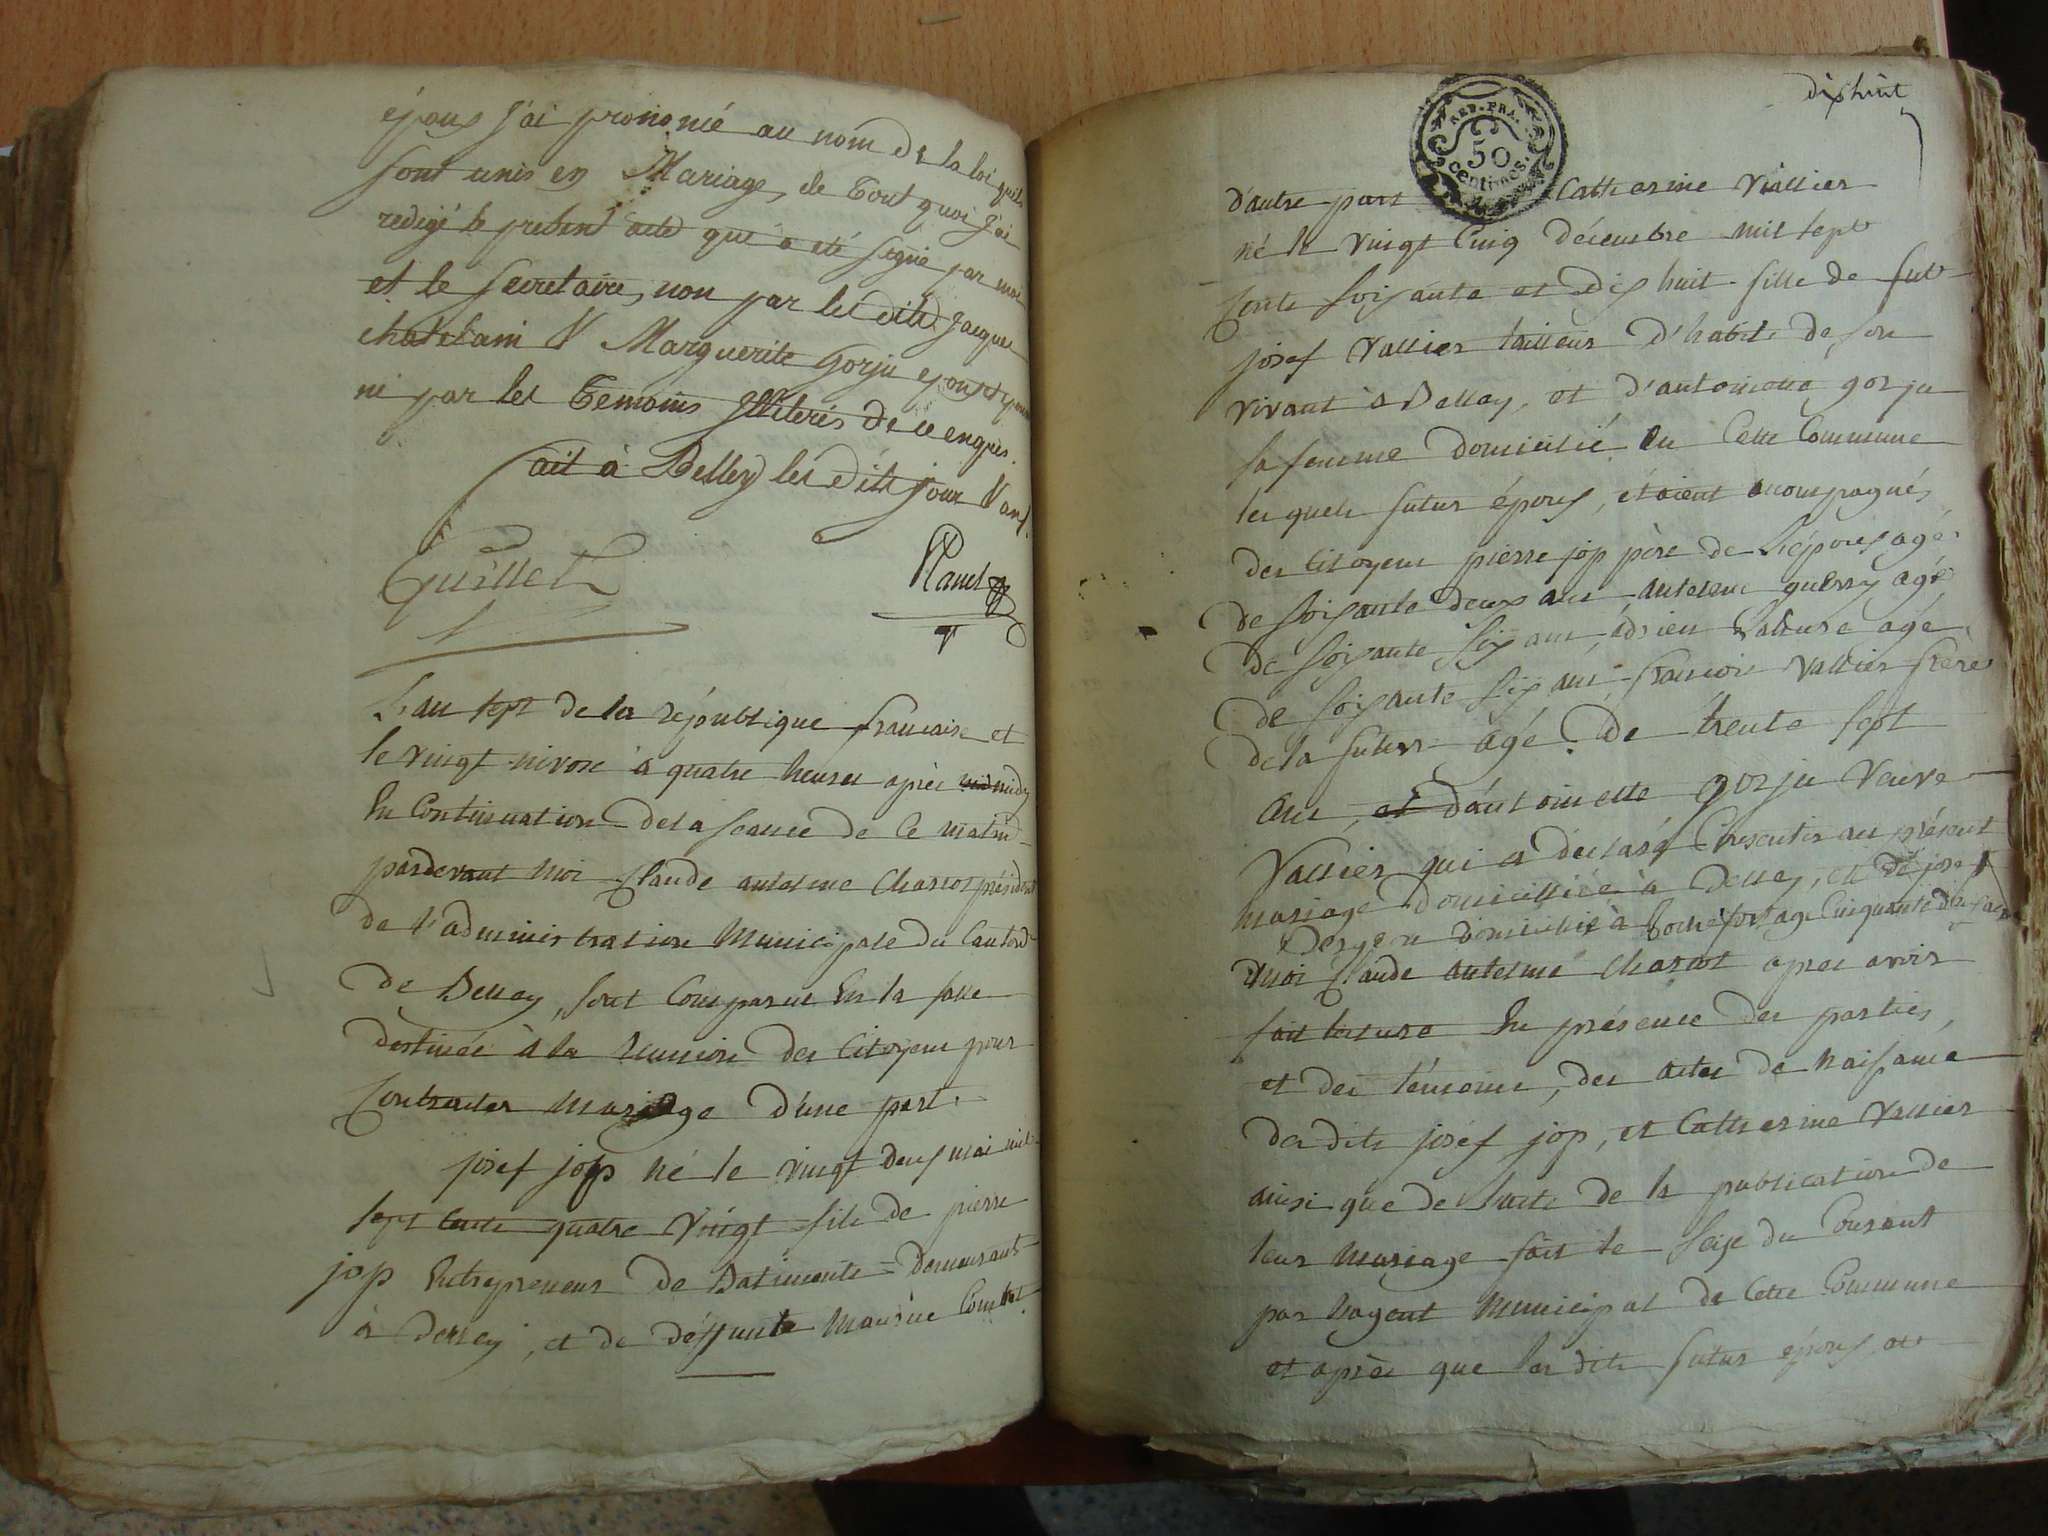 épous J'ai prononcé au nom de la loi quils
sont unis en Mariage, de tout quoi J'ai
redigé le present acte qui a eté signé par moi
et le secretaire, non par les dits Jacques
chatelain & Marguerite Gorju
ni par les Temoins illiterés de ce enquis.
fait à Belley les dits jour & an
Guillet
L'an sept de la république française et
le vingt nivose à quatre heures après midy
En Continuation de la seance de Ce matin
pardevant moi Claude antelme Charcot président
de l'administration Municipale du Canton
de Belley, sont Comparus En la salle
destinée à la reunion des Citoyens pour
Contracter mariage d'une part.
josef jop né le vingt deux mai mil
sept cents quatre vingt fils de pierre
jop Entrepreneur de Batiments Demeurant
à Belley, et de déffunte
dixhuit
REP. FRA.
50
centimes.
d'autre part Catherine Vallier
né le vingt Cinq décembre mil sept
Cents soixante et dix huit fille de fut
josef Vallier tailleur d'habits de son
vivant à Belley, et d'antoinette gorju
sa femme domicilié en Cette Commune
les quels futur épous, étoient accompagnés
des Citoyens pierre jop père de l'épous agé
de soixante deux ans, antelme guerry agé
de soixante six ans, adrien agé
de soixante six ans françois Vallier frère
de la future agé de trente sept
ans, et d'antoinette gorju Veuve
Vallier qui a déclaré Consentir au présent
mariage domicilliée à Belley, et de josef
domicilié à Rochefort agé Cinquante
moi Claude antelme Charcot apres avoir
fait lecture En présence des parties,
et des témoins, des actes de naissance
des dits josef jop, et Catherine Vallier
ainsi que de l'acte de la publication de
leur mariage fait le seize du Courant
par l'agent Municipal de Cette Commune
et après que les dits futur épous et